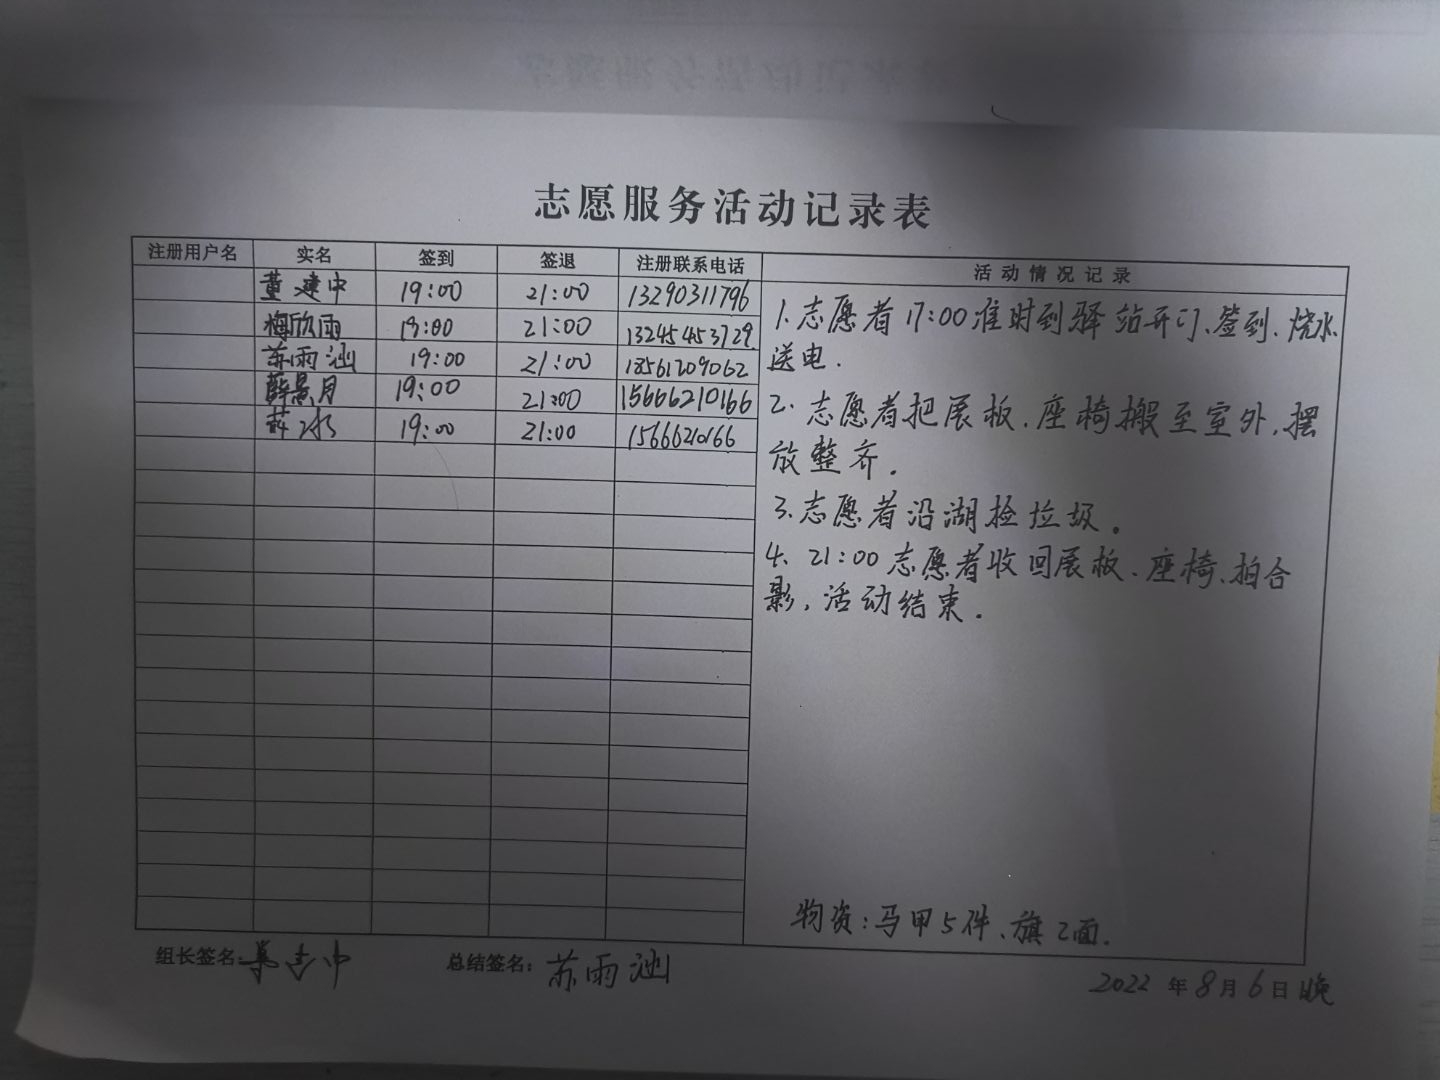 志愿服务活动记录表
注册用户名 实名 签到 签退 注册联系电话 活动情况记录
董建中 19:00 21:00 13290311796
梅欣雨 19:00 21:00 13245453729
苏雨涵 19:00 21:00 18561209062
薛景月 19:00 21:00 15666210166
19:00 21:00 15666210166
1.志愿者17:00准时到驿站开门、签到、烧水
送电.
2.志愿者把展板、座椅搬至室外,摆
放整齐.
3.志愿者沿湖捡垃圾.
4.21:00志愿者收回展板、座椅、拍合
影,活动结束.
物资:马甲5件、旗2面.
组长签名:董建中 总结签名:苏雨涵
2022年8月6日晚